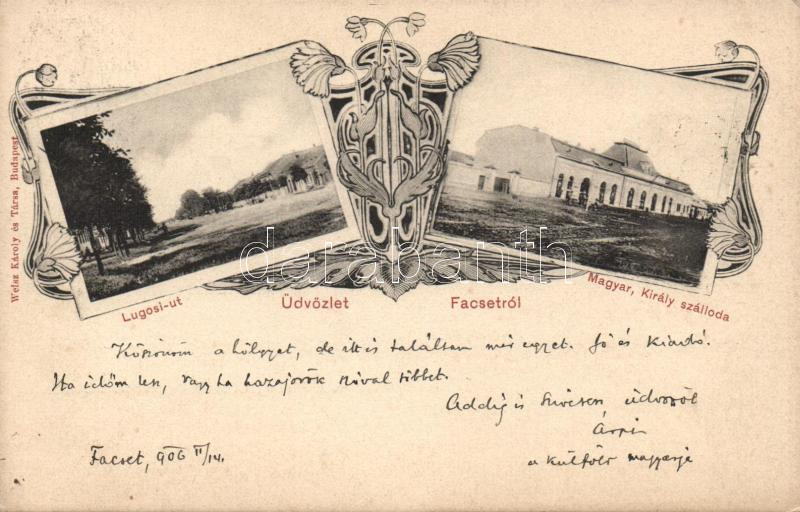 Weisz Károly és Társa, Budapest
Lugosi-ut
Üdvözlet Facsetről
Magyar, Király szálloda
darabanth
Köszönöm a hölgyet, de itt is találtam már egyet. Jó és Kiadó.
Ha időm lesz, vagy ha hazajövök szóval többet.
Addig is szívesen üdvözöl
Árpi
a külföldi magyarja
Facset, 906 II/14.